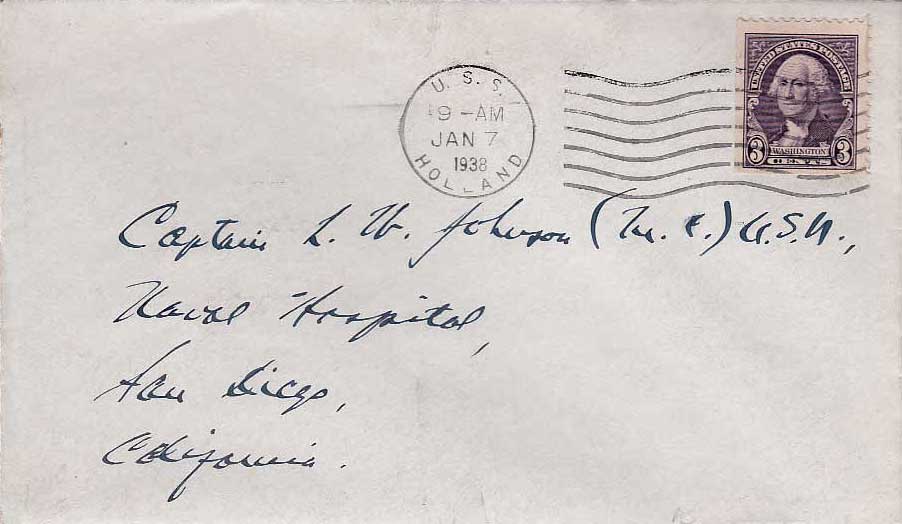 U. S. S.
9-AM
JAN 7
1938
HOLLAND
UNITED STATES POSTAGE
3 WASHINGTON 3
CENTS
Captain L. W. Johnson (M. C.) U.S.N.,
Naval Hospital,
San Diego,
California.